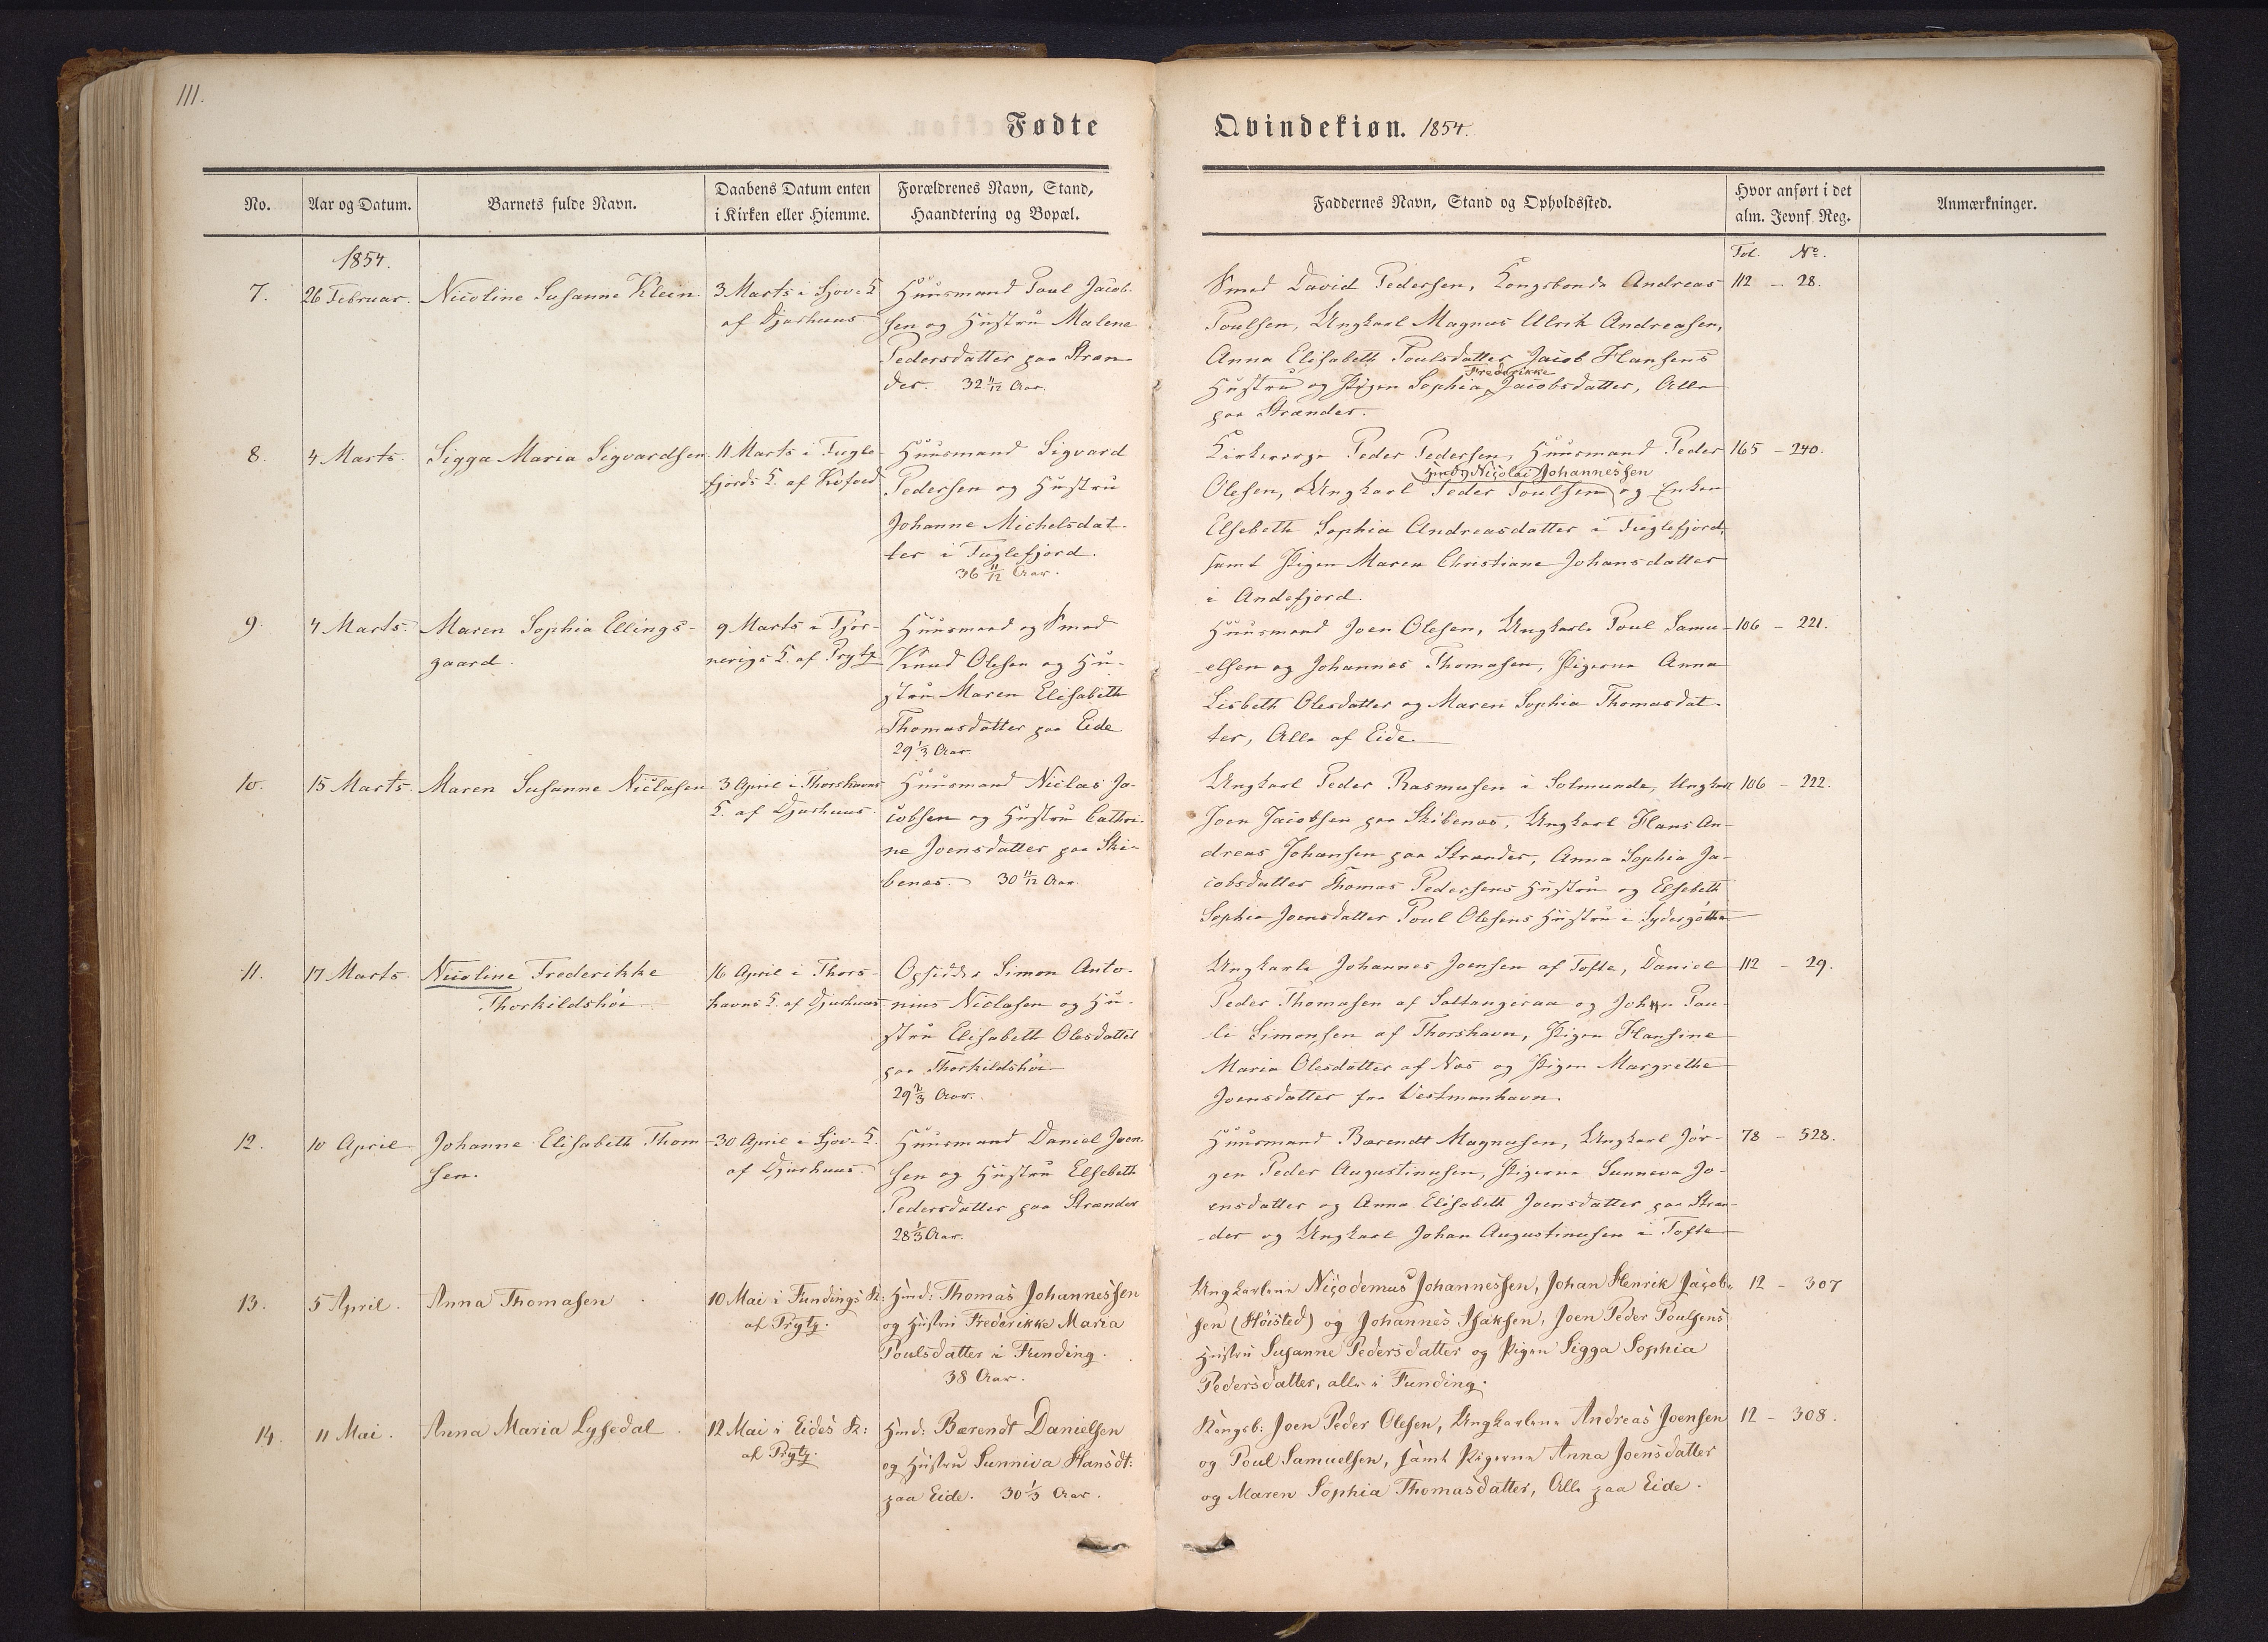 111.
Fødte
Qvindekiøn. 1854.
No.
Aar og Datum.
Barnets fulde Navn.
Daabens Datum enten
i Kirken eller Hiemme.
Forældrenes Navn, Stand,
Haandtering og Bopæl.
Faddernes Navn, Stand og Opholdssted.
Hvor anført i det
alm. Jevnf. Reg.
Anmærkninger.
1854.
Fol. No.
7.
26 Februar.
Nicoline Susanne Klein
3 Marts i Sjov. K
af Djurhuus
Huusmand Poul Jacob-
sen og Hustru Malene
Pedersdatter paa Stran-
der. 32 11/12 Aar.
Smed David Pedersen, Kongsbonde Andreas
Poulsen, Ungkarl Magnus Ulrik Andreasen,
Anna Elisabeth Poulsdatter Jacob Hansens
Frederikke
Hustru og Pigen Sophia Jacobsdatter, Alle
paa Strænder.
112 - 28.
8.
4 Marts.
Sigga Maria Sigvardsen
11 Marts i Fugle-
fjords K. af Kofoed
Huusmand Sigvard
Pedersen og Hustru
Johanne Michelsdat-
ter i Fuglefjord.
36 11/12 Aar.
Kirkeværge Peder Pedersen, Huusmand Peder
Nicolai Johannessen
Olesen, Ungkarl Peder Poulsen og Enken
Elsebeth Sophia Andreasdatter i Fuglefjord,
samt Pigen Maren Christiane Johansdatter
i Andefjord.
165 - 240.
9.
4 Marts.
Maren Sophia Ellings-
gaard.
9 Marts i Tjør-
nevigs K. af Prytz
Huusmand og Smed
Knud Olesen og Hu-
stru Maren Elisabeth
Thomasdatter paa Eide
29 1/3 Aar
Huusmand Joen Olesen, Ungkarle Poul Samu-
elsen og Johannes Thomasen, Pigerne Anna
Lisbeth Olesdatter og Maren Sophia Thomasdat-
ter, Alle af Eide.
106 - 221.
10.
15 Marts.
Maren Susanne Niclasen
3 April i Thorshavns
K. af Djurhuus.
Huusmand Niclas Ja-
cobsen og Hustru Cathri-
ne Joensdatter paa Ski-
benæs. 30 11/12 Aar.
Ungkarl Peder Rasmusen i Solmunde, Ungkarl
Joen Jacobsen paa Skibenæs, Ungkarl Hans An-
dreas Johansen paa Strænder, Anna Sophia Ja-
cobsdatter Thomas Pedersens Hustru og Elsebeth
Sophia Joensdatter Poul Olesens Hustru i Sydergöthe
106 - 222.
11.
17 Marts.
Nicoline Frederikke
Thorkildshöi
16 April i Thors-
havns K. af Djurhuus
Opsidder Simon Anto-
nius Niclasen og Hu-
stru Elisabeth Olesdatter
paa Thorkildshöi
29 2/3 Aar.
Ungkarle Johannes Joensen af Tofte, Daniel
Peder Thomasen af Saltangeraa og Johan Pau-
li Simonsen af Thorshavn, Pigen Hansine
Maria Olesdatter af Næs og Pigen Margrethe
Joensdatter fra Vestmanhavn.
112 - 29.
12.
10 April
Johanne Elisabeth Thom-
sen.
30 April i Sjov. K.
af Djurhuus.
Huusmand Daniel Joen-
sen og Hustru Elsebeth
Pedersdatter paa Strænder
28 1/3 Aar.
Huusmand Bærendt Magnusen, Ungkarl Jør-
gen Peder Augustinusen, Pigerne Sunneva Jo-
ensdatter og Anna Elisabeth Joensdatter paa Stræn-
der og Ungkarl Johan Augustinusen i Tofte
78 - 528.
13.
5 April.
Anna Thomasen
10 Mai i Fundings K:
af Prytz.
Hmd: Thomas Johannessen
og Hustru Frederikke Maria
Poulsdatter i Funding.
38 Aar.
Ungkarlene Nicodemus Johannessen, Johan Henrik Jacob-
sen (Höisted) og Johannes Isaksen, Joen Peder Poulsens
Hustru Susanne Pedersdatter og Pigen Sigga Sophia
Pedersdatter, alle i Funding.
12 - 307
14.
11 Mai.
Anna Maria Lysedal.
12 Mai i Eides K:
af Prytz.
Hmd: Bærendt Danielsen
og Hustru Sunniva Hansdt:
paa Eide. 30 1/3 Aar.
Kongsb: Joen Peder Olesen, Ungkarlene Andreas Joensen
og Poul Samuelsen, samt Pigerne Anna Joensdatter
og Maren Sophia Thomasdatter, Alle paa Eide.
12 - 308.